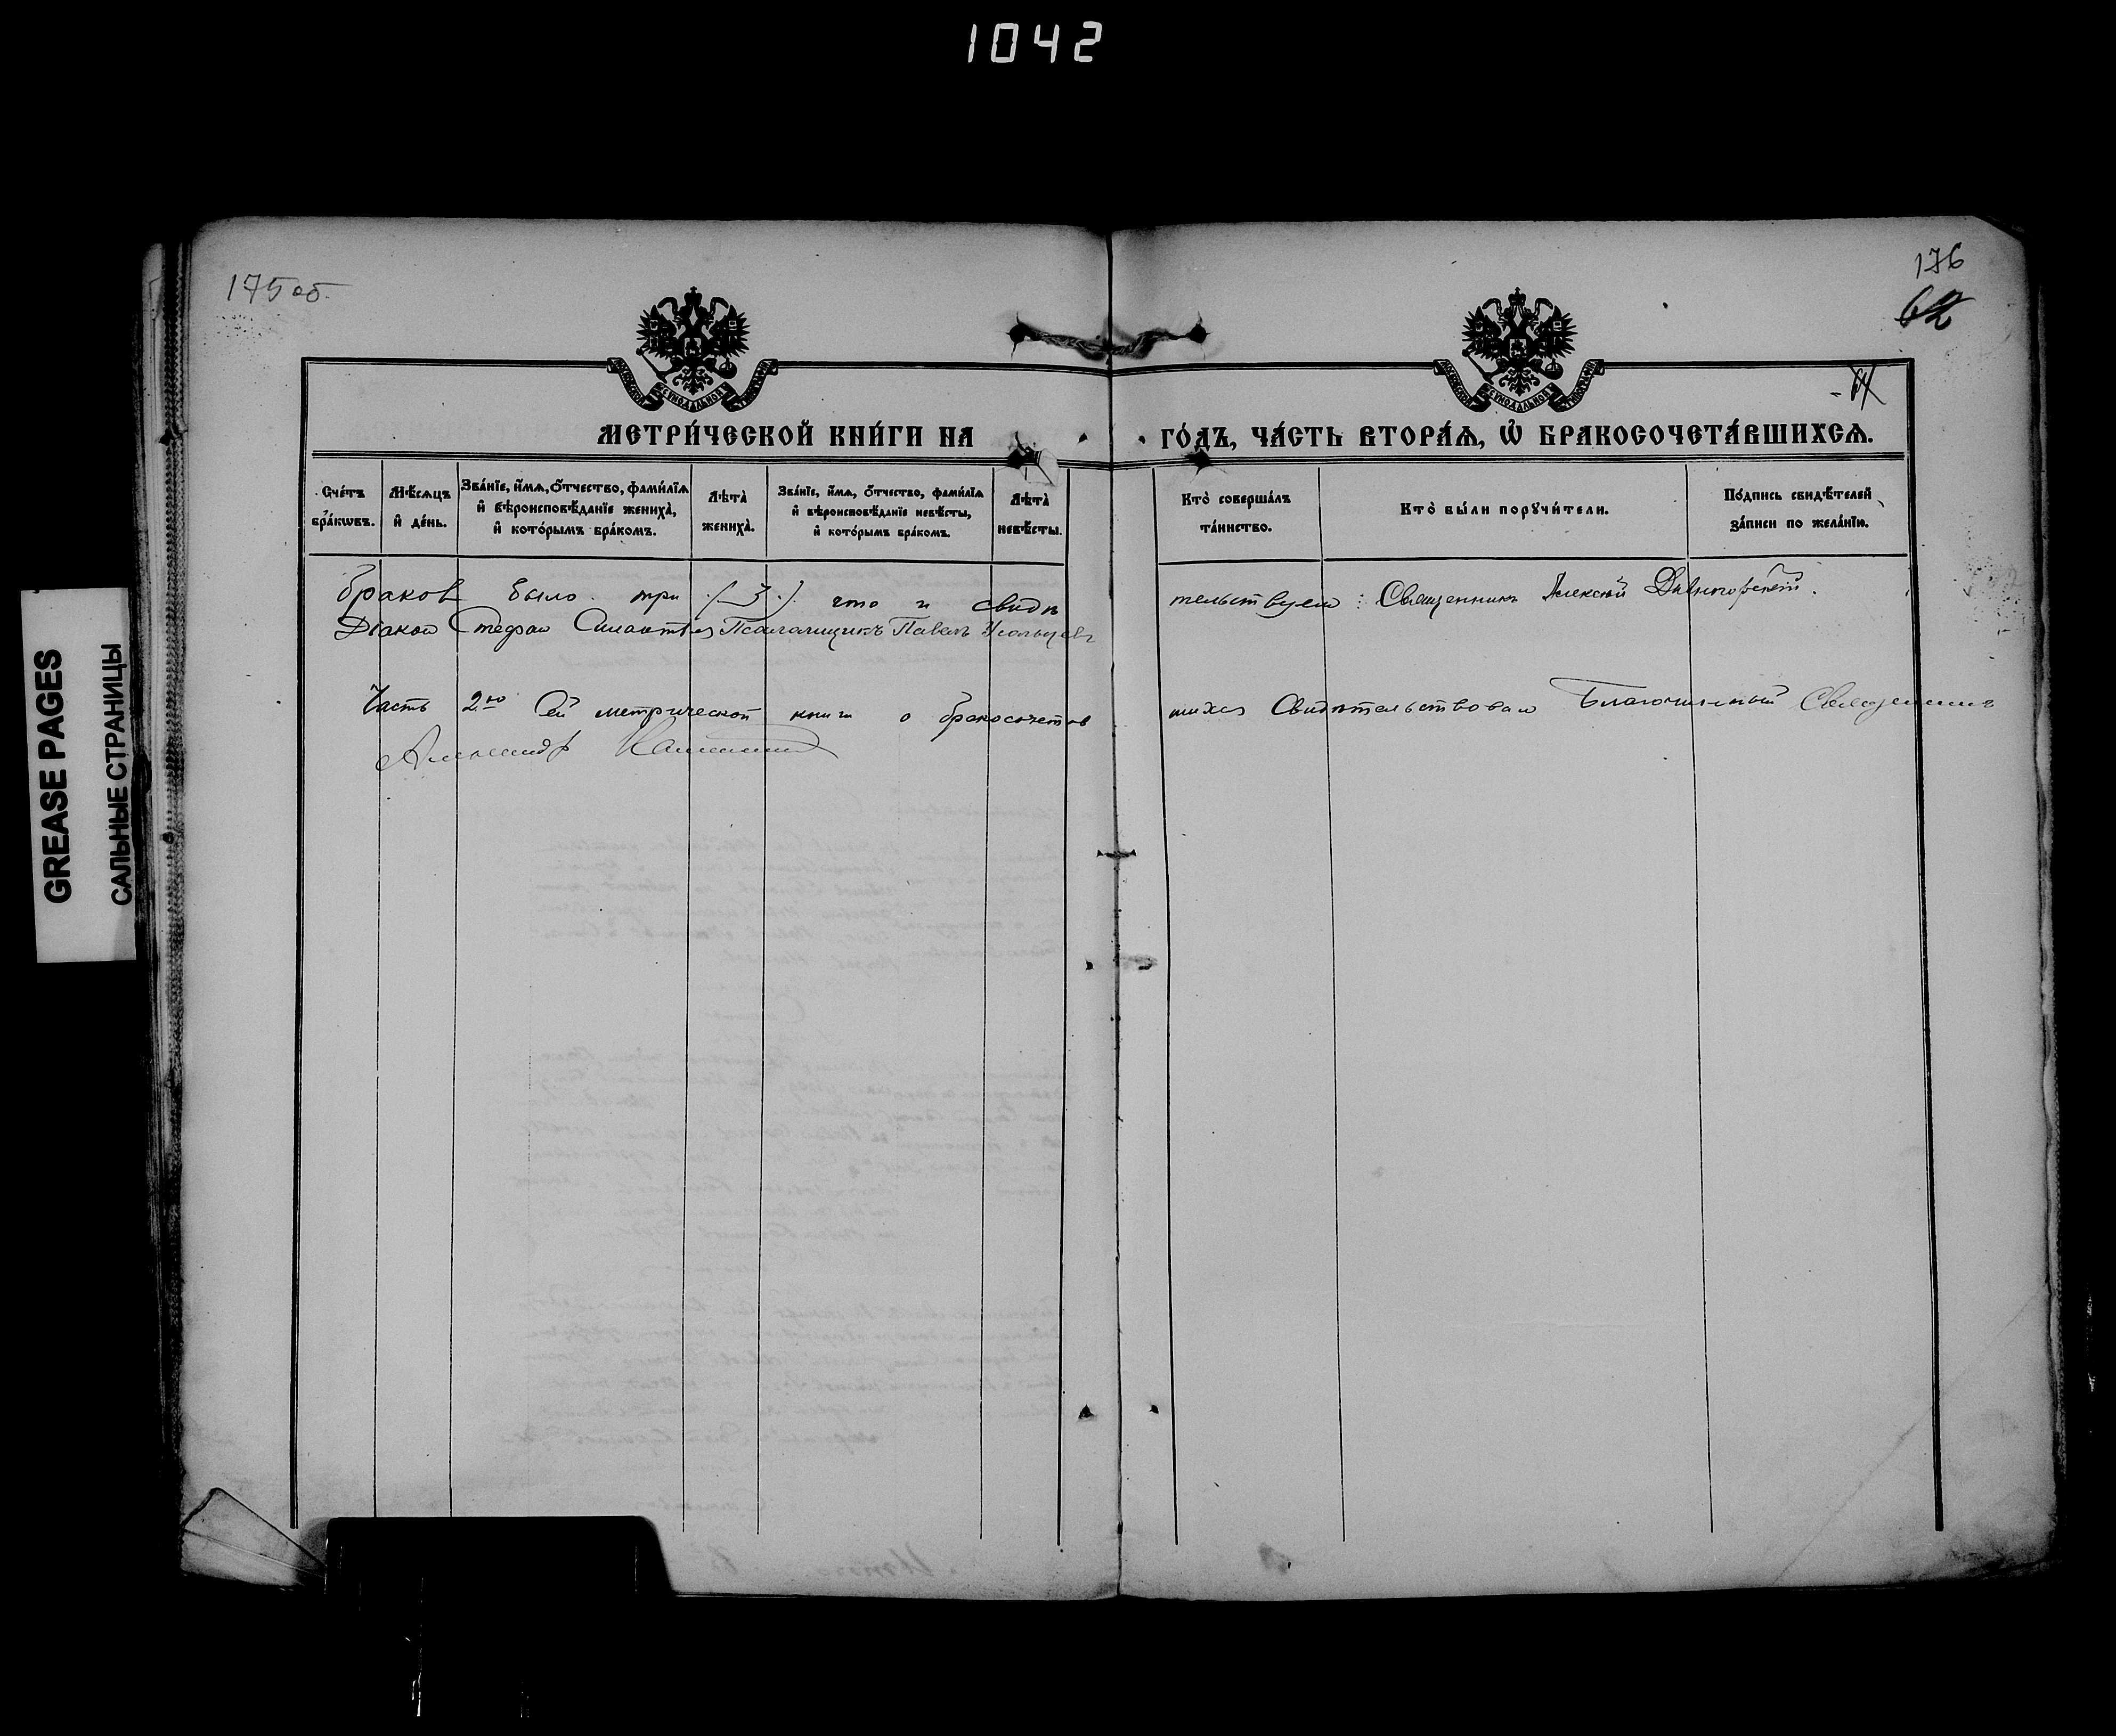 1042
175 об.
176
62
64
МЕТРИ́ЧЕСКОЙ КНИ́ГИ НА ГО́ДЪ, ЧА́СТЬ ВТОРА́Ѧ, Ѽ БРАКОСОЧЕТА́ВШИХСѦ.
Сче́тъ бра́кѡвъ.
Мѣ́сѧцъ и҆ де́нь.
Зва́нїе, и҆́мѧ, ѻ҆́тчество, фами́лїѧ и҆ вѣроисповѣ́данїе жениха̀, и҆ кото́рымъ бра́комъ.
Лѣ́та̀ жениха̀.
Зва́нїе, и҆́мѧ, ѻ҆́тчество, фами́лїѧ и҆ вѣроисповѣ́данїе невѣ́сты, и҆ кото́рымъ бра́комъ.
Лѣ́та̀ невѣ́сты.
Кто̀ соверша́лъ та́инство.
Кто̀ бы́ли порꙋчи́тели.
По́дпись свидѣ́телей за́писи по жела́нїю.
браков было три (3) что и свидѣ тельствуем: Священникъ Алексій
Діакон Стефан Псаломщикъ Павелъ
Часть 2ю Сей метрической книги о бракосочетав шихся Свидѣтельствовал Благочинный Священникъ
Александр
GREASE PAGES
САЛЬНЫЕ СТРАНИЦЫ